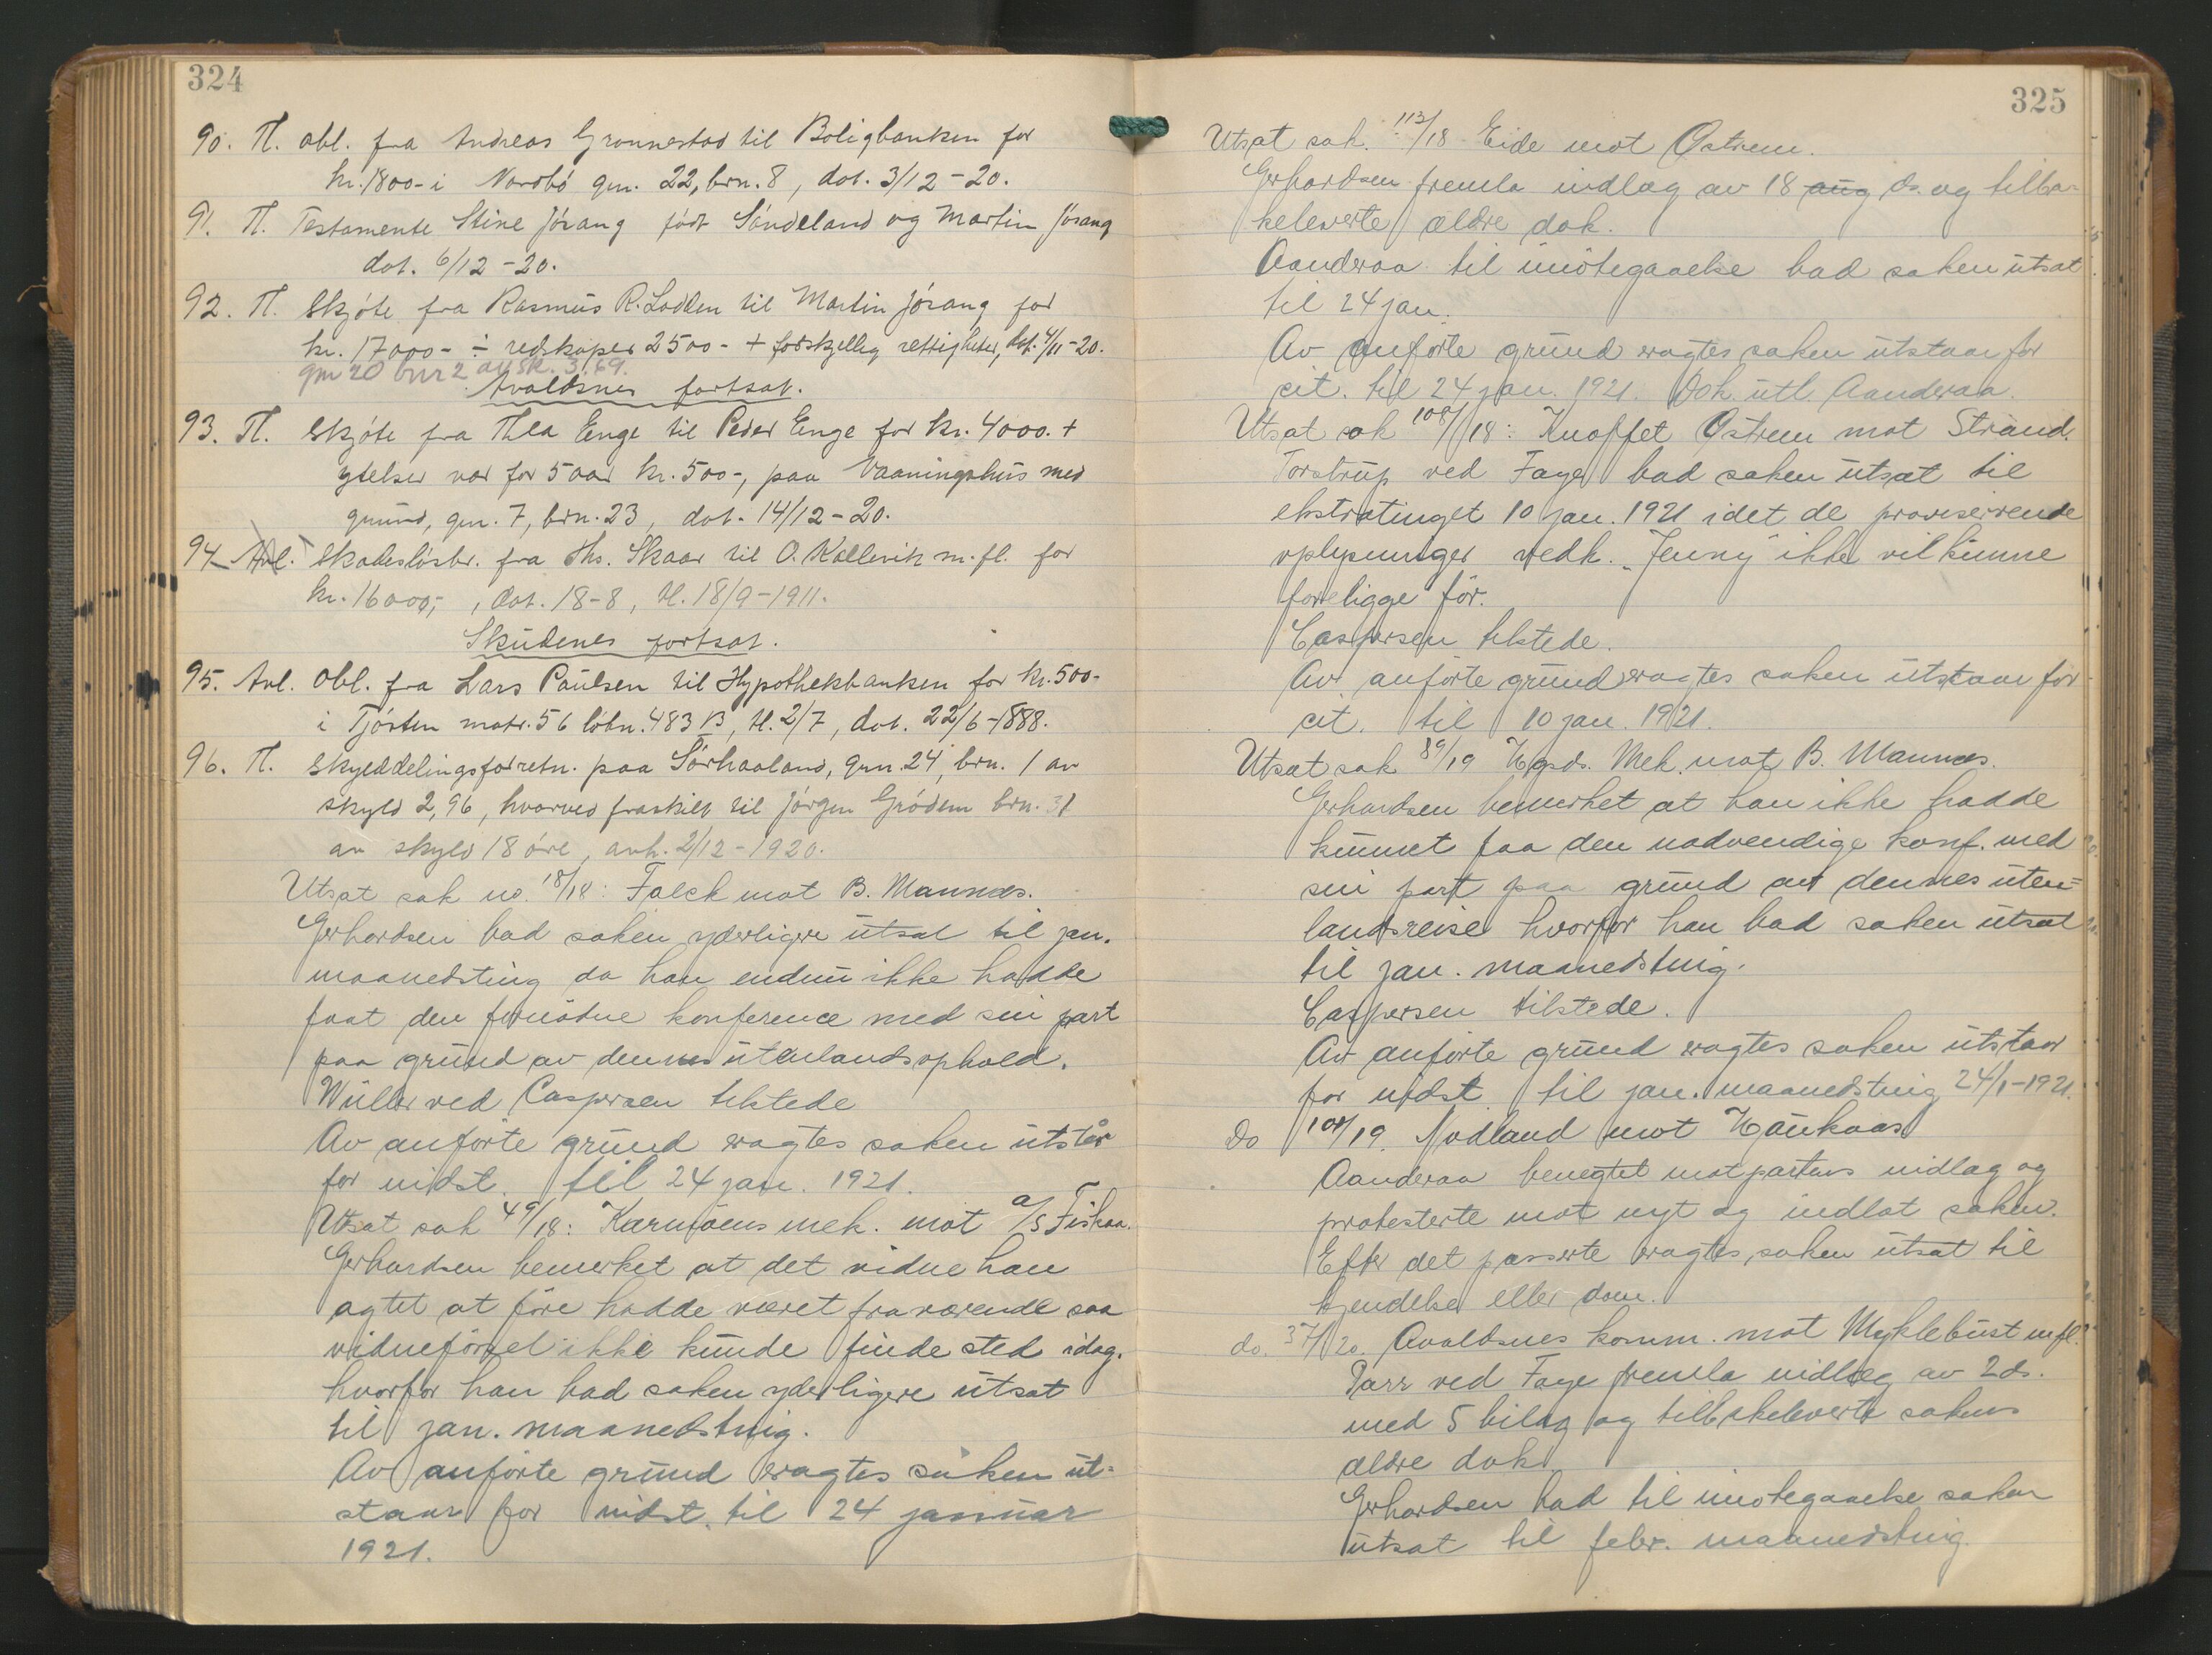 324
90. Tl. Obl. fra Andreas Gronnestad til Boligbanken for
kr. 1800- i Nordbö gm. 22, brn. 8, dat. 3/12-20.
91. Tl. Testamente Stine Jösang født Söndeland og Martin Jösang
dat. 6/12-20.
92. Tl. Skjöte fra Rasmus R. Lodden til Martin Jösang for
kr. 17000- ÷ redskaper 2500- + forskjellig rettigheter, dat. 4/11-20.
gnr 20 bnr 2 av sk. 3.69.
Avaldsnes fortsat.
93. Tl. Skjöte fra Thea Enge til Peder Enge for kr. 4000. +
ytelser var for 5 aar kr. 500-, paa Vaaningshus med
grund, gm. 7, brn. 23, dat. 14/12-20.
94 Avl. Skadeslösbr. fra Ths. Skaar til O. Kallevik m. fl. for
kr. 16000,-, dat. 18-8, tl. 18/9-1911.
Skudenes fortsat.
95. Avl. Obl. fra Lars Paulsen til Hypothekbanken for kr. 500-
i Tjösten matr. 56 löbn. 483 B, tl. 2/7, dat. 22/6-1888.
96. Tl. Skylddelingsforretn. paa Sörhaaland, gm. 24, brn. 1 av
skyld 2,96, hvorved fraskilt til Jörgen Grödem brn. 31
av skyld 18 öre, avh. 2/12-1920.
Utsat sak no. 18/18: Falck mot B. Mannes.
Gerhardsen bad saken yderligere utsat til jan.
maanedsting da han endnu ikke hadde
faat den fornödne konference med sin part
paa grund av dennes utenlandsophold.
Müller ved Caspersen tilstede
Av anförte grund vagtes saken utstår
for vidst. til 24 jan. 1921.
Utsat sak 49/18: Karmöens mek. mot a/s Fiskaa.
Gerhardsen bemerket at det vidne han
agtet at före hadde været fraværende saa
vidneförsel ikke kunde finde sted idag.
hvorfor han bad saken yderligere utsat
til jan. maanedsting.
Av anförte grund vagtes saken ut-
staar for vidst. til 24 januar
1921.
325
Utsat sak. 113/18 Eide mot Østrem.
Gerhardsen fremla indlag av 18 aug ds. og tilba-
keleverte ældre dok.
Aanderaa til imötegaaelse bad saken utsat
til 24 jan.
Av anförte grund vagtes saken utstaar for
cit. til 24 jan. 1921. Dok. utl. Aanderaa.
Utsat sak 108/18: Knoffet Østrem mot Strand.
Torstrup ved Faye bad saken utsat til
ekstratinget 10 jan. 1921 idet de proviserende
oplysninger vedk. "Jenny" ikke vil kunne
foreligge för.
Caspersen tilstede.
Av anförte grund vagtes saken utstaar for
cit. til 10 jan. 1921.
Utsat sak 89/19 Hgsds. Mek. mot B. Mannes.
Gerhardsen bemerket at han ikke hadde
kunnet faa den nødvendige konf. med
sin part paa grund av dennes uten=
landsreise hvorfor han bad saken utsat
til jan. maanedsting.
Caspersen tilstede.
Av anförte grund vagtes saken utstaar
for vidst. til jan. maanedsting 24/1-1921.
Do 104/19. Nodland mot Haukaas
Aanderaa benegtet motpartens indlag og
protesterte mot nyt og indlot saken.
Efter det passerte vagtes saken utsat til
kjendelse eller dom.
do. 37/20. Avaldsnes komm. mot Myklebust m fl.
Parr ved Faye fremla indlæg av 2 ds.
med 5 bilag og tilbakeleverte sakens
ældre dok.
Gerhardsen bad til imötegaaelse saken
utsat til febr. maanedsting.